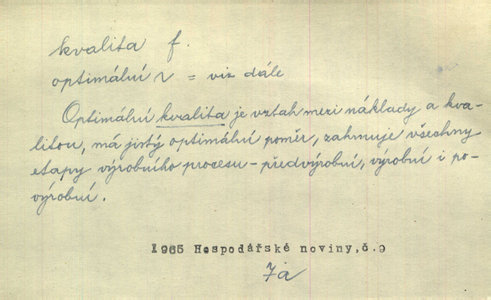 kvalita f.
optimální ~ = viz dále
Optimální kvalita je vztah mezi náklady a kva-
litou, má jistý optimální poměr, zahrnuje všechny
etapy výrobního procesu - předvýrobní, výrobní i po-
výrobní.
1965 Hospodářské noviny,č.9
Já